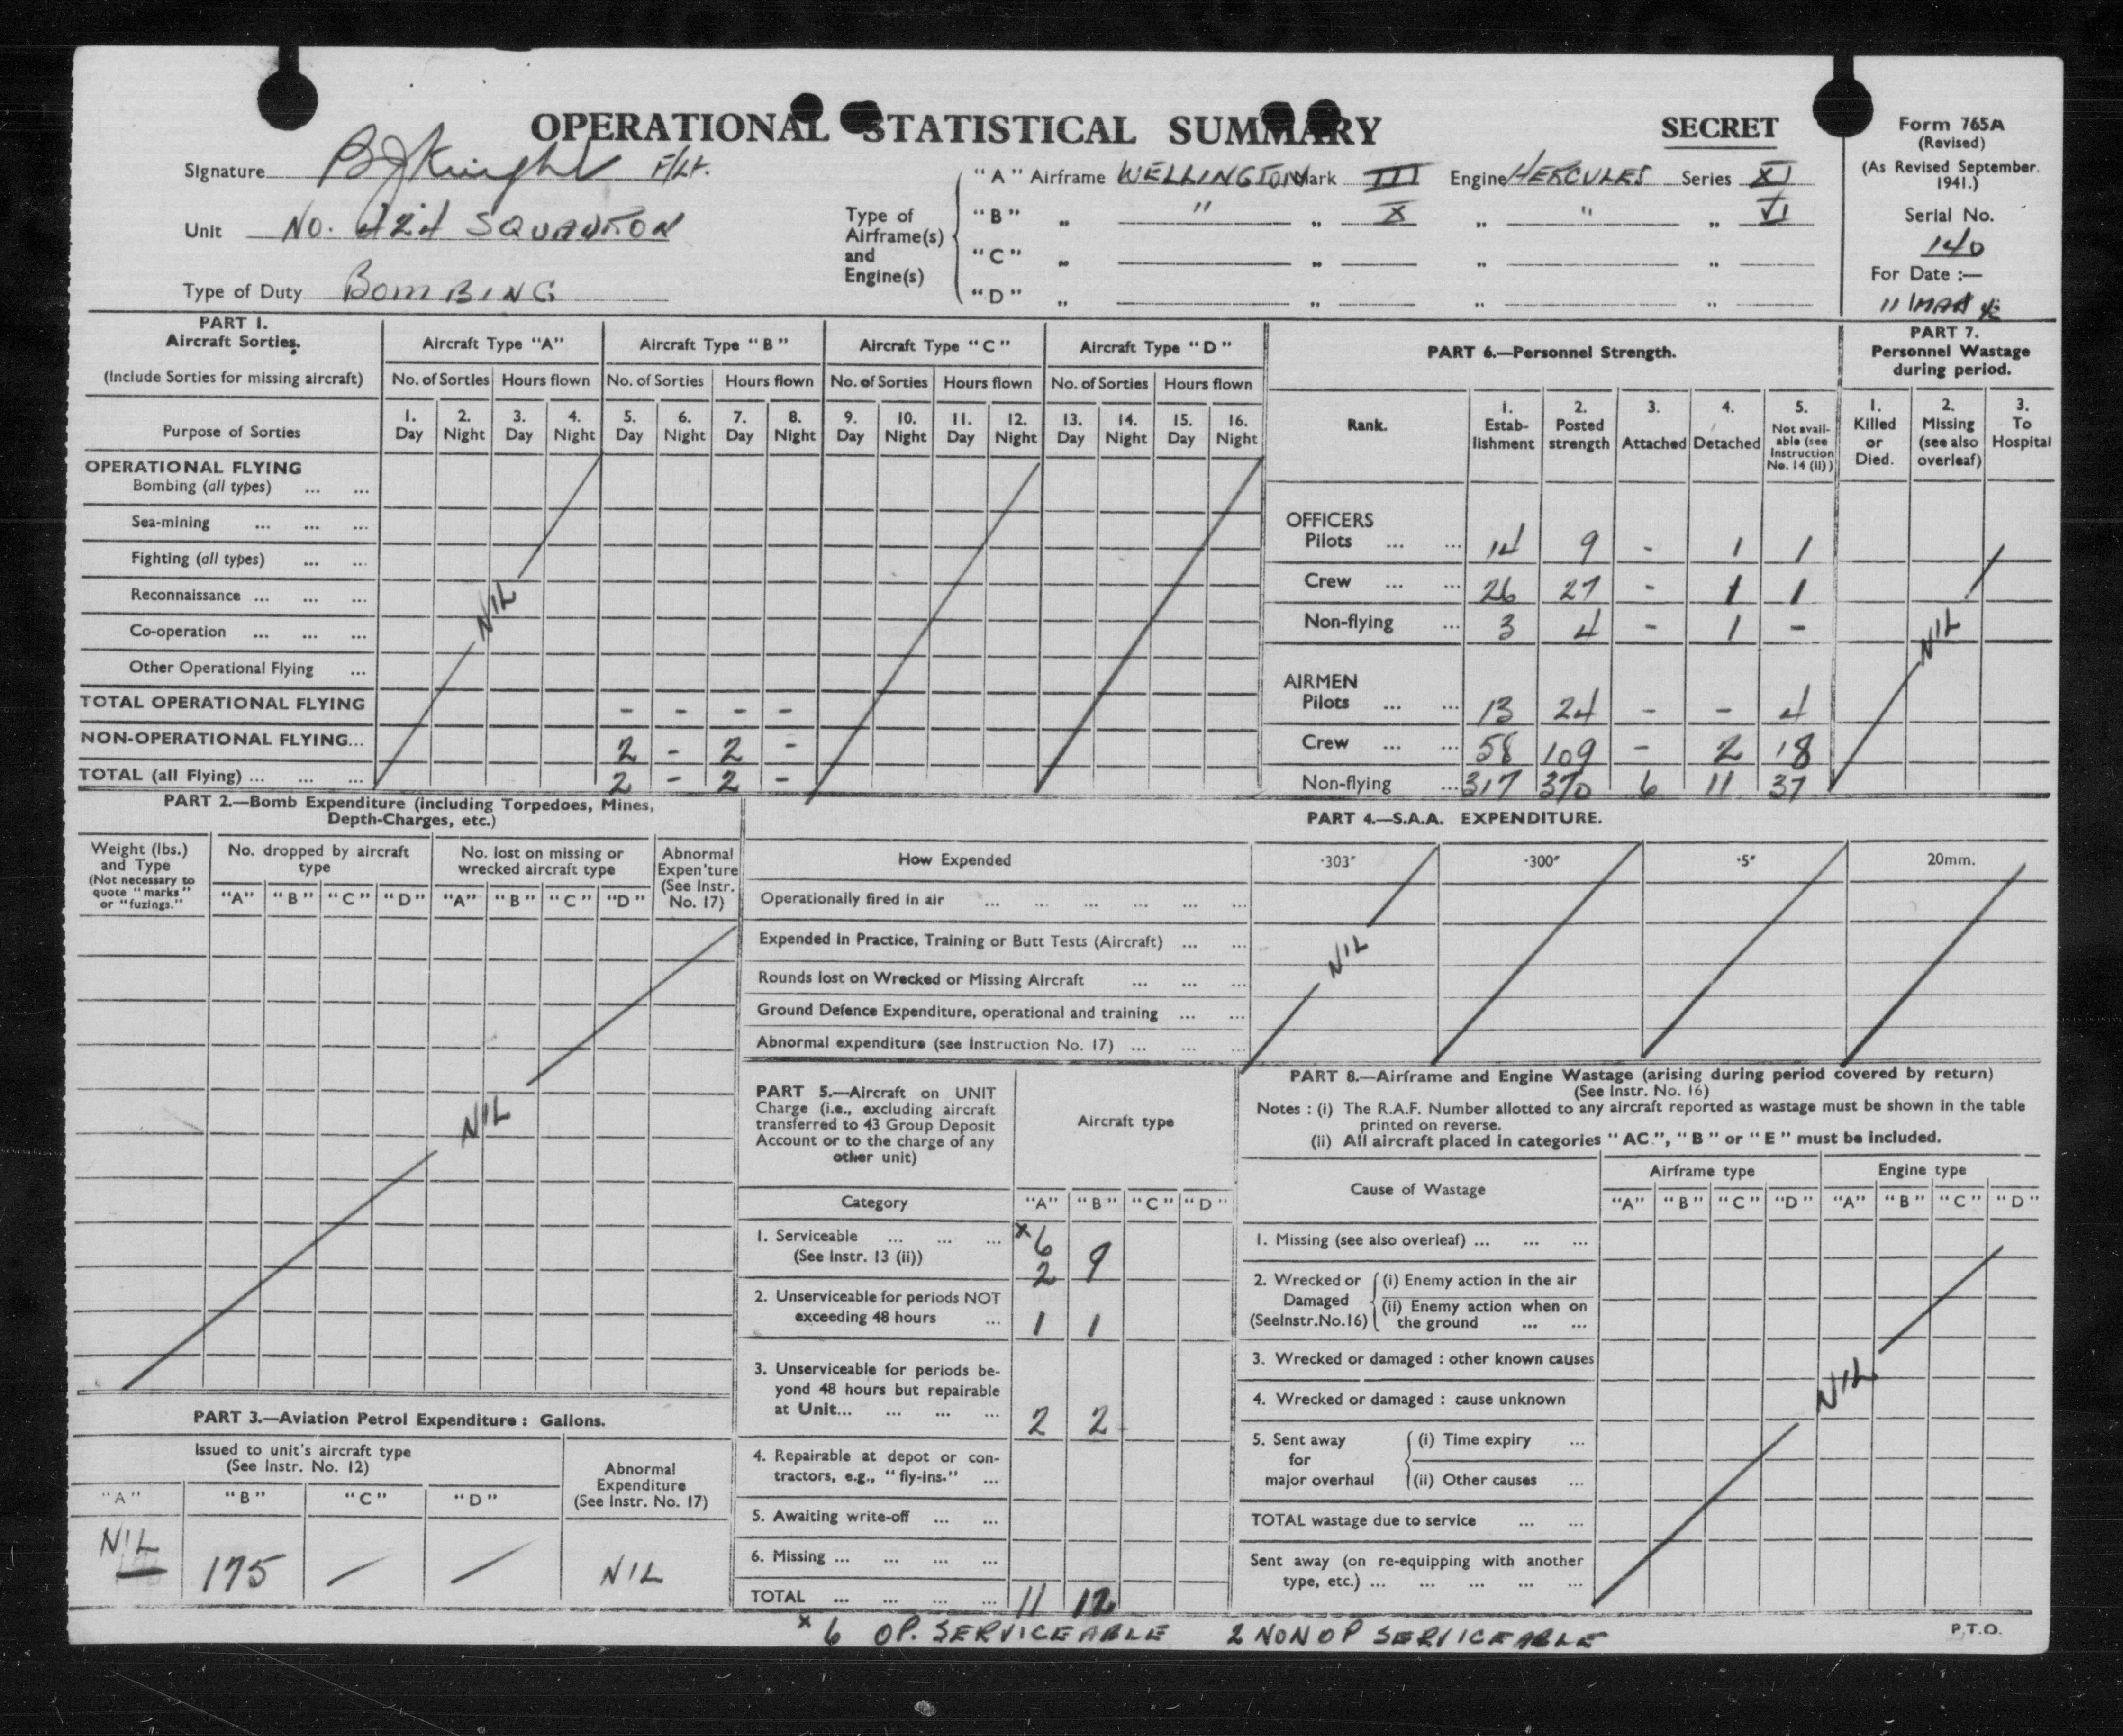 OPERATIONAL STATISTICAL SUMMARY
SECRET
Form 765A
(Revised)
(As Revised September 1941.)
Serial No.
140
For Date :—
11 MAR
Signature B J Knight F/Lt.
Unit No. 424 SQUADRON
Type of Duty BOMBING
Type of Airframe(s) and Engine(s)
"A" Airframe WELLINGTON Mark III Engine HERCULES Series XI
"B" „ " „ X „ " „ VI
"C" „ „ „ „
"D" „ „ „ „
PART 1.
Aircraft Sorties.
(Include Sorties for missing aircraft)
Aircraft Type "A" Aircraft Type "B" Aircraft Type "C" Aircraft Type "D"
No. of Sorties Hours flown No. of Sorties Hours flown No. of Sorties Hours flown No. of Sorties Hours flown
Purpose of Sorties
1. Day 2. Night 3. Day 4. Night 5. Day 6. Night 7. Day 8. Night 9. Day 10. Night 11. Day 12. Night 13. Day 14. Night 15. Day 16. Night
OPERATIONAL FLYING
Bombing (all types) ... ...
Sea-mining ... ... ...
Fighting (all types) ... ...
Reconnaissance ... ... ...
NIL
Co-operation ... ... ...
Other Operational Flying ...
TOTAL OPERATIONAL FLYING - - - -
NON-OPERATIONAL FLYING... 2 - 2 -
TOTAL (all Flying) ... ... ... 2 - 2 -
PART 6.—Personnel Strength.
Rank.
1. Estab-lishment
2. Posted strength
3. Attached
4. Detached
5. Not avail-able (see Instruction No. 14 (ii))
OFFICERS
Pilots ... ... 14 9 - 1 1
Crew ... ... 26 27 - 1 1
Non-flying ... 3 4 - 1 -
AIRMEN
Pilots ... ... 13 24 - - 4
Crew ... ... 58 109 - 2 18
Non-flying ... 317 370 6 11 37
PART 7.
Personnel Wastage during period.
1. Killed or Died.
2. Missing (see also overleaf)
3. To Hospital
NIL
PART 2.—Bomb Expenditure (including Torpedoes, Mines, Depth-Charges, etc.)
Weight (lbs.) and Type
(Not necessary to quote "marks" or "fuzings."
No. dropped by aircraft type
No. lost on missing or wrecked aircraft type
Abnormal Expen'ture (See Instr. No. 17)
"A" "B" "C" "D" "A" "B" "C" "D"
NIL
PART 3.—Aviation Petrol Expenditure : Gallons.
Issued to unit's aircraft type
(See Instr. No. 12)
Abnormal Expenditure
(See Instr. No. 17)
"A" "B" "C" "D"
NIL 175 — — NIL
PART 4.—S.A.A. EXPENDITURE.
How Expended ·303″ ·300″ ·5″ 20mm.
Operationally fired in air ... ... ... ... ... ...
Expended in Practice, Training or Butt Tests (Aircraft) ... ...
NIL
Rounds lost on Wrecked or Missing Aircraft ... ... ...
Ground Defence Expenditure, operational and training ... ...
Abnormal expenditure (see Instruction No. 17) ... ... ...
PART 5.—Aircraft on UNIT
Charge (i.e., excluding aircraft
transferred to 43 Group Deposit
Account or to the charge of any
other unit)
Aircraft type
Category "A" "B" "C" "D"
1. Serviceable ... ... ... x6
(See Instr. 13 (ii)) 2 9
2. Unserviceable for periods NOT
exceeding 48 hours ... 1 1
3. Unserviceable for periods be-
yond 48 hours but repairable
at Unit... ... ... ... 2 2
4. Repairable at depot or con-
tractors, e.g., "fly-ins." ...
5. Awaiting write-off ... ...
6. Missing ... ... ... ...
TOTAL ... ... ... ... 11 12
PART 8.—Airframe and Engine Wastage (arising during period covered by return)
(See Instr. No. 16)
Notes : (i) The R.A.F. Number allotted to any aircraft reported as wastage must be shown in the table
printed on reverse.
(ii) All aircraft placed in categories "AC", "B" or "E" must be included.
Cause of Wastage
Airframe type Engine type
"A" "B" "C" "D" "A" "B" "C" "D"
1. Missing (see also overleaf) ... ... ...
2. Wrecked or Damaged (SeeInstr.No.16)
(i) Enemy action in the air
(ii) Enemy action when on the ground ... ...
3. Wrecked or damaged : other known causes
4. Wrecked or damaged : cause unknown
NIL
5. Sent away for major overhaul
(i) Time expiry ...
(ii) Other causes ...
TOTAL wastage due to service ... ...
Sent away (on re-equipping with another
type, etc.) ... ... ... ... ...
x 6 OP. SERVICEABLE 2 NON OP SERVICEABLE
P.T.O.